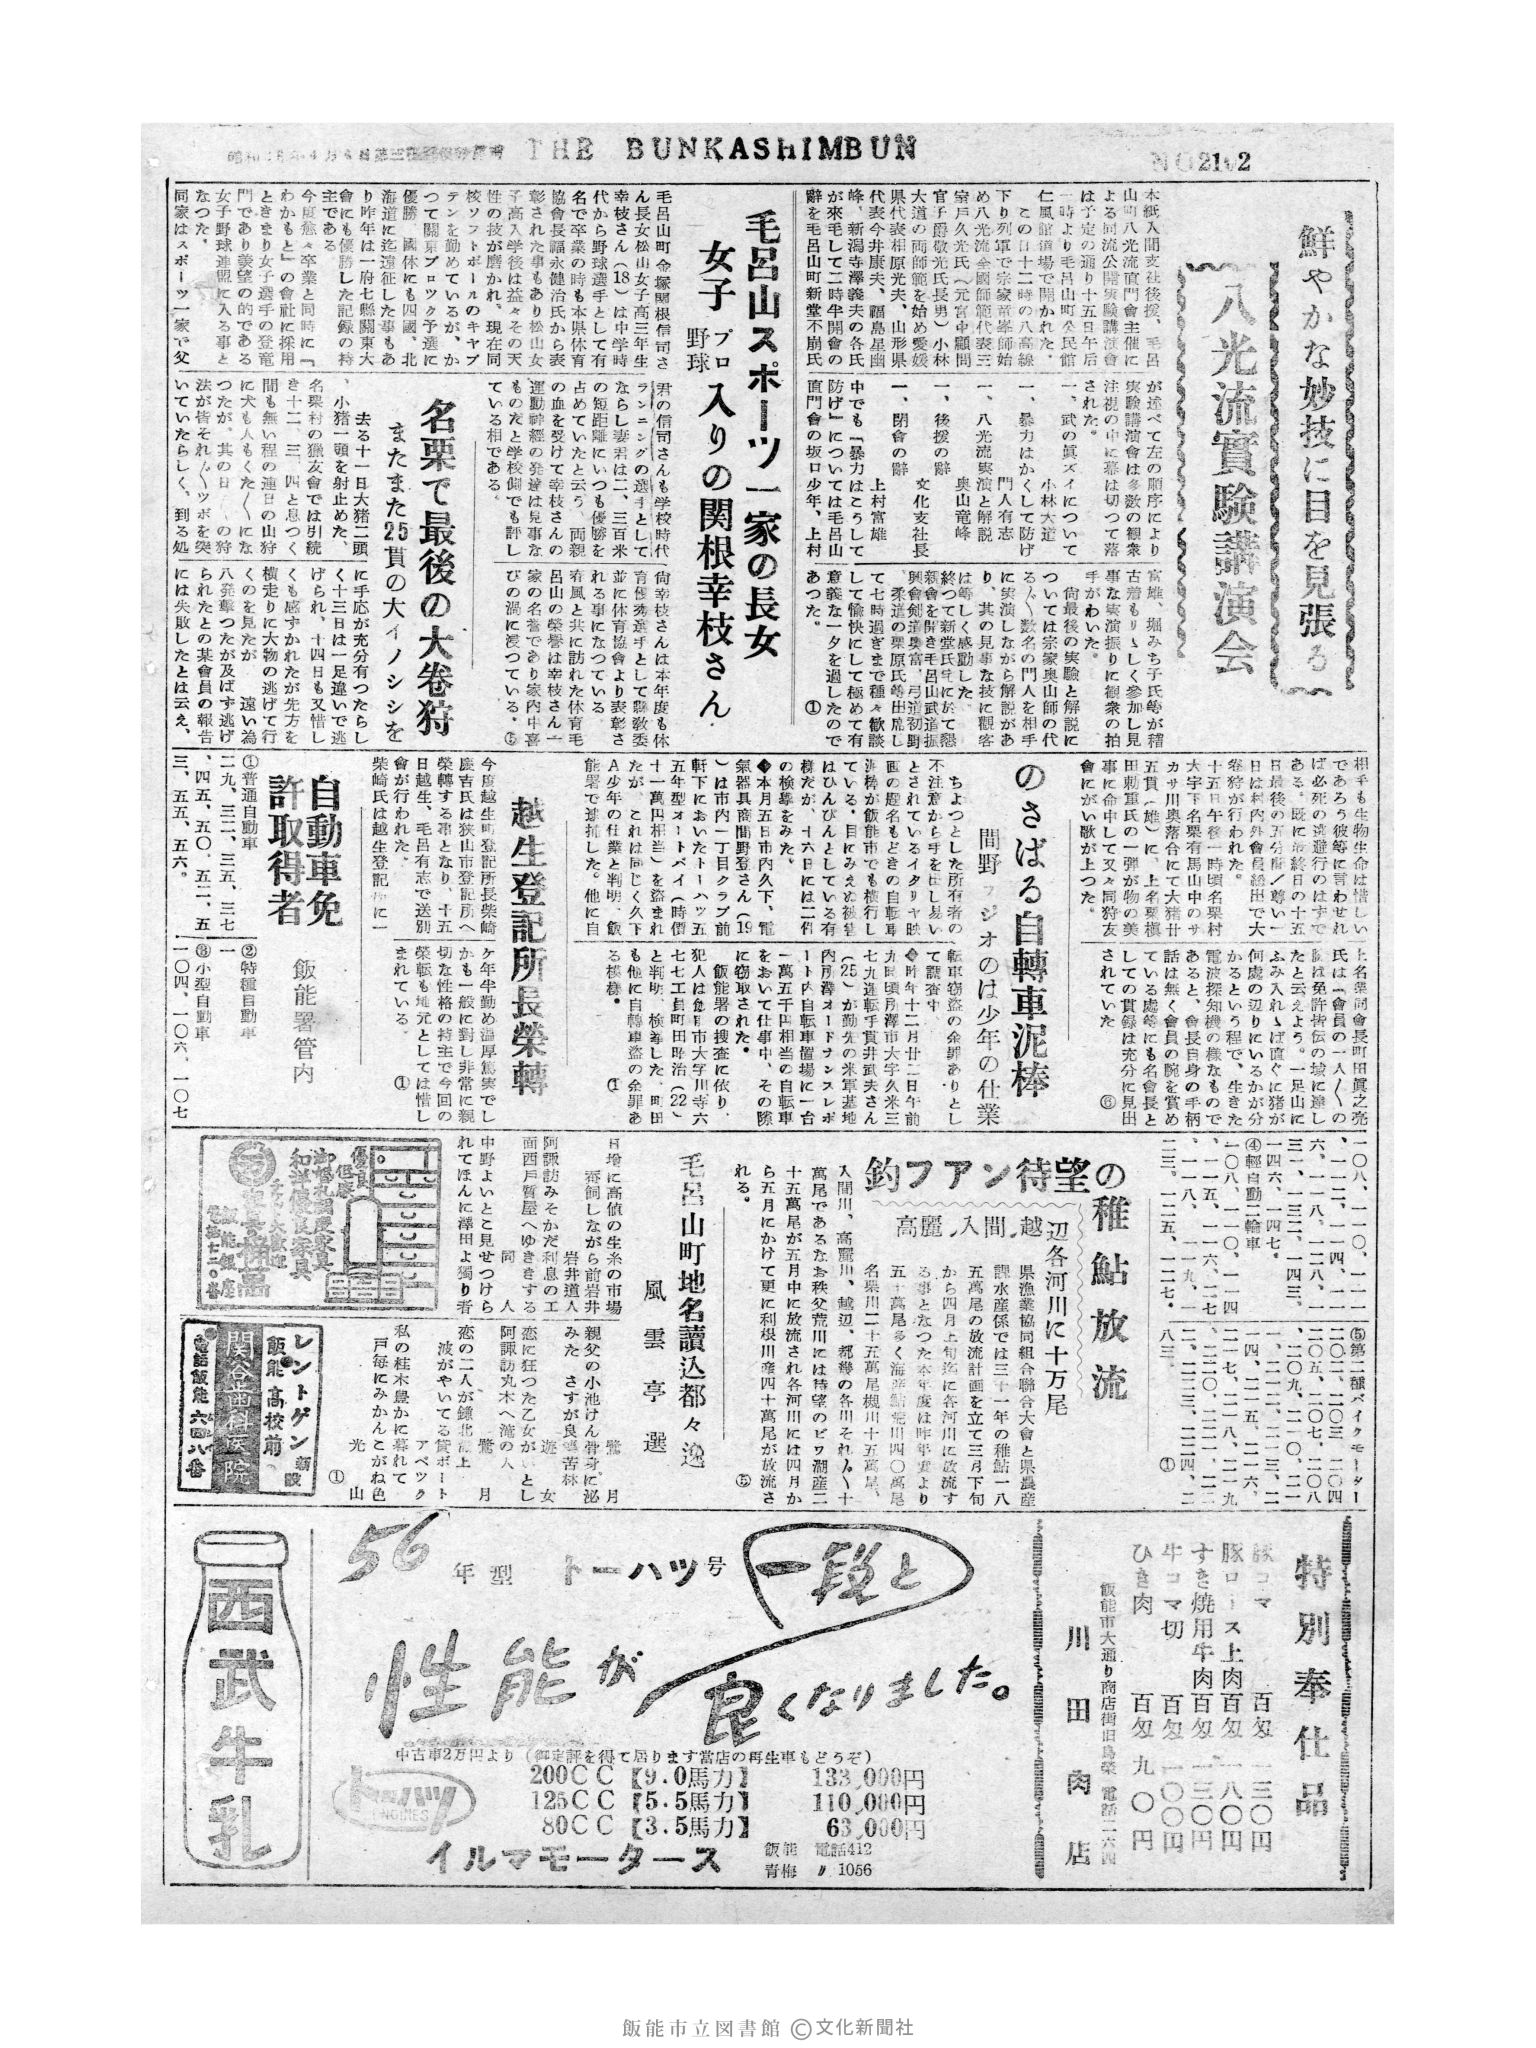 THE BUNKASHIMBUN
NO 2102
鮮やかな妙技に目を見張る
八光流實験講演会
本紙入間支社後援、毛呂
山町八光流直門會主催に
よる同流公開実験講演會
は予定の通り十五日午后
一時より毛呂山町公民館
仁風館道場で開かれた。
この日十二時の八高線
下り列車で宗家竜峯師始
め八光流全國師範代表三
室戸久光氏(元宮中顧問
官子爵敬光氏長男)小林
大道の両師範を始め愛媛
県代表相原光夫、山形県
代表今井康夫、福島星幽
峰、新潟寺澤義夫の各氏
が來毛して二時半開會の
辭を毛呂山町新堂不崩氏
が述べて左の順序により
実験講演会は多数の観衆
注視の中に幕は切つて落
された。
一、武の眞ズイについて
小林大道
一、暴力はかくして防げ
門人有志
一、八光流実演と解説
奥山竜峰
一、後援の辭
文化支社長
一、閉會の辭
上村富雄
中でも『暴力はこうして
防げ』については毛呂山
直門會の坂口少年、上村
富雄、堀みち子氏等が稽
古着もりゝしく参加し見
事な実演振りに観衆の拍
手がわいた。
尚最後の実驗と解説に
ついては宗家奥山師の代
る〲数名の門人を相手
に実演しながら解説があ
り、其の見事な技に觀客
は等しく感動した。
終つて新堂氏宅に於て懇
親會を開き毛呂山武道振
興會剣道奥富、弓道初野
、柔道の栗原氏等出席し
て七時過ぎまで種々歓談
して愉快にして極めて有
意義な一夕を過したので
あつた。①
毛呂山スポーツ一家の長女
女子プロ野球入りの関根幸枝さん
毛呂山町金塚關根信司さ
ん長女松山女子高三年生
幸枝さん(18)は中学時
代から野球選手として有
名で卒業の時も本県体育
協會長福永健治氏から表
彰された事もあり松山女
子高入学後は益々その天
性の技が磨かれ、現在同
校ソフトボールのキヤプ
テンを勤めているが、か
つて關東ブロツク予選に
優勝、國体にも四國、北
海道に迄遠征した事もあ
り昨年は一府七縣關東大
會にも優勝した記録の持
主である
今度愈々卒業と同時に『
わかもと』の會社に採用
ときまり女子選手の登竜
門であり羨望の的である
女子野球連盟に入る事と
なつた。
同家はスポーツ一家で父
君の信司さんも学校時代
ランニングの選手として
ならし妻君は二、三百米
の短距離にいつも優勝を
占めていたと云う、両親
の血を受けて幸枝さんの
運動神經の発達は見事な
ものだと学校側でも評し
ている相である。
尙幸枝さんは本年度も体
育優秀選手として縣敎委
並に体育協會より表彰さ
れる事になつている。
春風と共に訪れた体育毛
呂山の榮譽は幸枝さん一
家の名誉であり家内中喜
びの渦に浸つている。⑤
名栗で最後の大巻狩
またまた25貫の大イノシシを
去る十一日大猪二頭
、小猪一頭を射止めた、
名栗村の猟友會では引続
き十二、三、四と息つく
間も無い程の連日の山狩
に犬も人もくた〱にな
つたが、其の日〱の狩
法が皆それ〲ツボを突
いていたらしく、到る処
に手応が充分有つたらし
く十三日は一足違いで逃
げられ、十四日も又惜し
くも感ずかれたが先方を
横走りに大物の逃げて行
くのを見たが 遠い為
八発撃つたが及ばず逃げ
られたとの某會員の報告
には失敗したとは云え、
相手も生物生命は惜しい
であろう彼等に言わせれ
ば必死の逃避行のはずで
ある。既に最終日の十五
日最後の五分間ノ尊い一
日は村内外會員総出で大
巻狩が行われた。
十五日午後一時頃名栗村
大字下名栗有馬山中のサ
カサ川奥落合にて大猪廿
五貫(雄)に、上名栗槇
田勅重氏の一弾が物の美
事に命中して又々同狩友
會にがい歌が上つた。
上名栗同會長町田眞之亮
氏は『會員の一人〱の
腕は免許皆伝の域に達し
たと云えよう。一足山に
ふみ入れゝば直ぐに猪が
何處の辺りにいるかが分
かるという程で、生きた
電波探知機の様なもので
あると、會長自身の手柄
話は無く會員の腕を賞め
ている處等にも名會長と
しての貫録は充分に見出
されていた ⑥
のさばる自轉車泥棒
間野ラジオのは少年の仕業
ちよつとした所有者の
不注意から手を出し易い
とされているイタリヤ映
画の題名もどきの自転車
泥棒が飯能市でも横行し
ている。目にみえぬ被害
はひんぴんとしている有
様だが、十六日には二件
の検挙をみた。
◆本月五日市内久下、電
気器具商間野登さん(19
)は市内一丁目クラブ前
軒下においたトーハツ五
五年型オートバイ(時價
十一萬円相当)を盗まれ
たが、これは同じく久下
A少年の仕業と判明、飯
能署で逮捕した。他に自
転車窃盗の余罪ありとし
て調査中
◆昨年十二月廿二日午前
九時頃所澤市大字久米三
七九運転手貫井武夫さん
(25)が勤先の米軍基地
内所澤オードナンスレポ
ート内自転車置場に一台
一萬五千円相当の自転車
をおいて仕事中、その隙
に窃取された。
飯能署の捜査に依り、
犯人は飯能市大字川寺六
七七工員町田昭治(22)
と判明、検挙した。町田
も他に自轉車盗の余罪あ
る模様。①
越生登記所長榮轉
今度越生町登記所長柴崎
慶吉氏は狭山市登記所へ
榮轉する事となり、十五
日越生、毛呂有志で送別
會が行われた。
柴崎氏は越生登記所に一
ヶ年半勤め温厚篤実でし
かも一般に対し非常に親
切な性格の持主で今回の
榮転も地元としては惜し
まれている。①
自動車免
許取得者
飯能署管内
①普通自動車
二九、三二、三五、三七
、四五、五〇、五二、五
三、五五、五六。
②特種自動車
一
③小型自動車
一〇四、一〇六、一〇七
一〇八、一一〇、一一一
、一一二、一一四、一一
六、一一八、一二八、一
三一、一三二、一四三、
一四六、一四七。
④輕自動二輪車
一〇八、一一〇、一一四
、一一五、一一六、一一七
、一一八、一一九、一
二三、一二五、一二七。
⑤第二種バイクモーター
二〇二、二〇三、二〇四
、二〇五、二〇七、二〇八
、二〇九、二一〇、二一
一、二一二、二一三、二
一四、二一五、二一六、
二一七、二一八、二一九
、二二〇、二二一、二二
二、二二三、二二四、二
八三。①
釣フアン待望の
稚鮎放流
高麗、入間、越
辺各河川に十万尾
県漁業協同組合聯合大會と県農産
課水産係では三十一年の稚鮎一八
五萬尾の放流計画を立て三月下旬
から四月上旬迄に各河川に放流す
る事となつた本年度は昨年度より
五十萬尾多く海産鮎荒川四〇萬尾
名栗川二十五萬尾槻川十五萬尾、
入間川、高麗川、越辺、都幾の各川それ〲十
萬尾であるなお秩父荒川には待望のビワ湖産二
十五萬尾が五月中に放流され各河川には四月か
ら五月にかけて更に利根川産四十萬尾が放流さ
れる。⑤
毛呂山町地名讀込都々逸
風雲亭選
日増に高値の生糸の市場
蚕飼しながら前岩井
岩井道人
阿諏訪みそかだ利息の工
面西戸質屋へゆききする
同 人
中野よいとこ見せつけら
れてほんに澤田よ獨り者
鷺 月
親父の小池けん骨身に泌
みた さすが良薬苦林
遊 女
恋に狂つた乙女がいとし
阿諏訪丸木へ滝の人
鷺 月
恋の二人が鎌北湖上
波がやいてる貸ボート
アベツク
私の桂木豊かに暮れて
戸毎にみかんこがね色
光 山
①
優良
低廉
御婚礼調度家具
和洋傢具家具
飯能銀座
レントゲン新設
飯能高校前
関谷歯科医院
電話飯能六四八番
特別奉仕品
豚コマ 百匁 一三〇円
豚ロース上肉 百匁 一八〇円
すき焼用牛肉 百匁 一三〇円
牛コマ切 百匁 一〇〇円
ひき肉 百匁 九〇円
飯能市大通り商店街旧島榮 電話二六四
川田肉店
56年型 トーハツ号
一段と
性能が
良くなりました。
中古車2万円より(御定評を得て居ります當店の再生車もどうぞ)
トーハツ
ENGINES
200CC【9.0馬力】 133,000円
125CC【5.5馬力】 110,000円
80CC【3.5馬力】 63,000円
イルマモータース
飯能 電話412
青梅 〃1056
西武牛乳
飯能市立図書館 ©文化新聞社